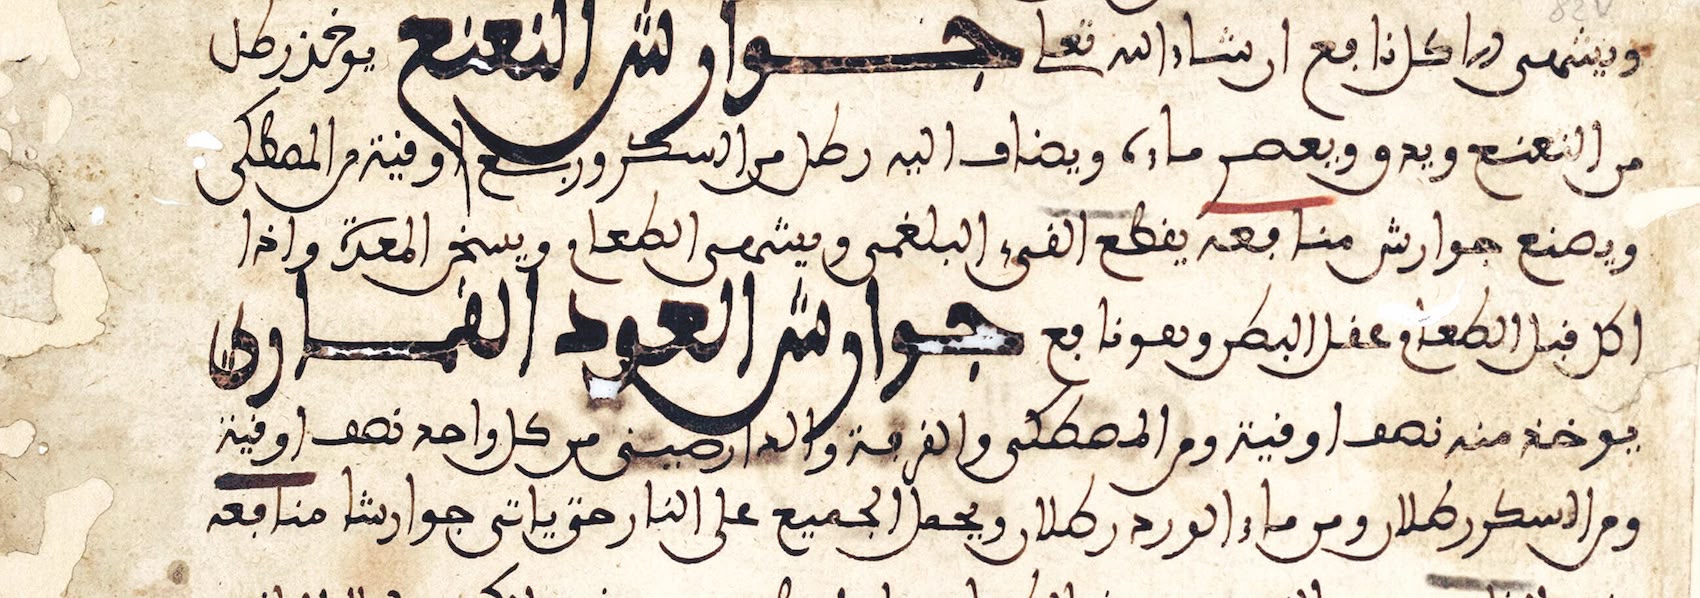 ويشهي الاكل نافع ان شاء الله تعا جوارش النعنع يوخذ رطل
من النعنع ويدق ويعصر ماءه ويضاف اليه رطل من السكر وربع اوقية من المصطكى
ويصنع جوارش منافعه يقطع القيء البلغمي ويشهي الطعام ويسخن المعدة واذا
اكل قبل الطعام عقل البطن وهو نافع جوارش العود القماري
يوخذ منه نصف اوقية ومن المصطكى والقرفة والدارصيني من كل واحد نصف اوقية
ومن السكر رطلان ومن ماء الورد رطلان ويحمل الجميع على النار حتى ياتي جوارشا منافعه